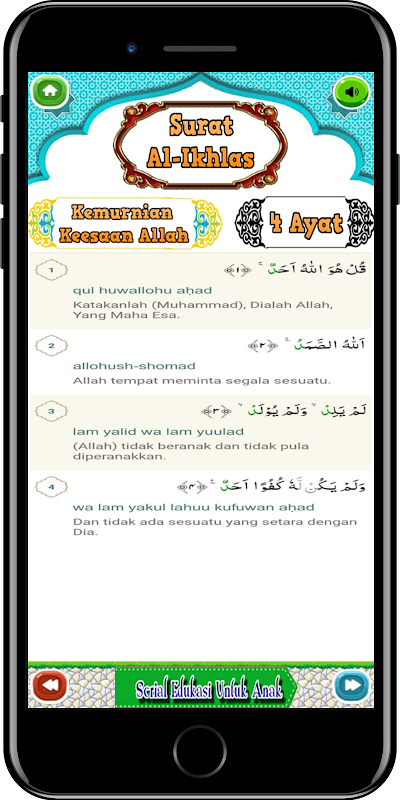 Surat
Al-Ikhlas
Kemurnian
Keesaan Allah
4 Ayat
1
قُلْ هُوَ اللّٰهُ اَحَدٌ ۚ ﴿١﴾
qul huwallohu aḥad
Katakanlah (Muhammad), Dialah Allah,
Yang Maha Esa.
2
اَللّٰهُ الصَّمَدُ ۚ ﴿٢﴾
allohush-shomad
Allah tempat meminta segala sesuatu.
3
لَمْ يَلِدْ ۙ وَلَمْ يُوْلَدْ ۙ ﴿٣﴾
lam yalid wa lam yuulad
(Allah) tidak beranak dan tidak pula
diperanakkan.
4
وَلَمْ يَكُنْ لَّهٗ كُفُوًا اَحَدٌ ۚ ﴿٤﴾
wa lam yakul lahuu kufuwan aḥad
Dan tidak ada sesuatu yang setara dengan
Dia.
Serial Edukasi Untuk Anak